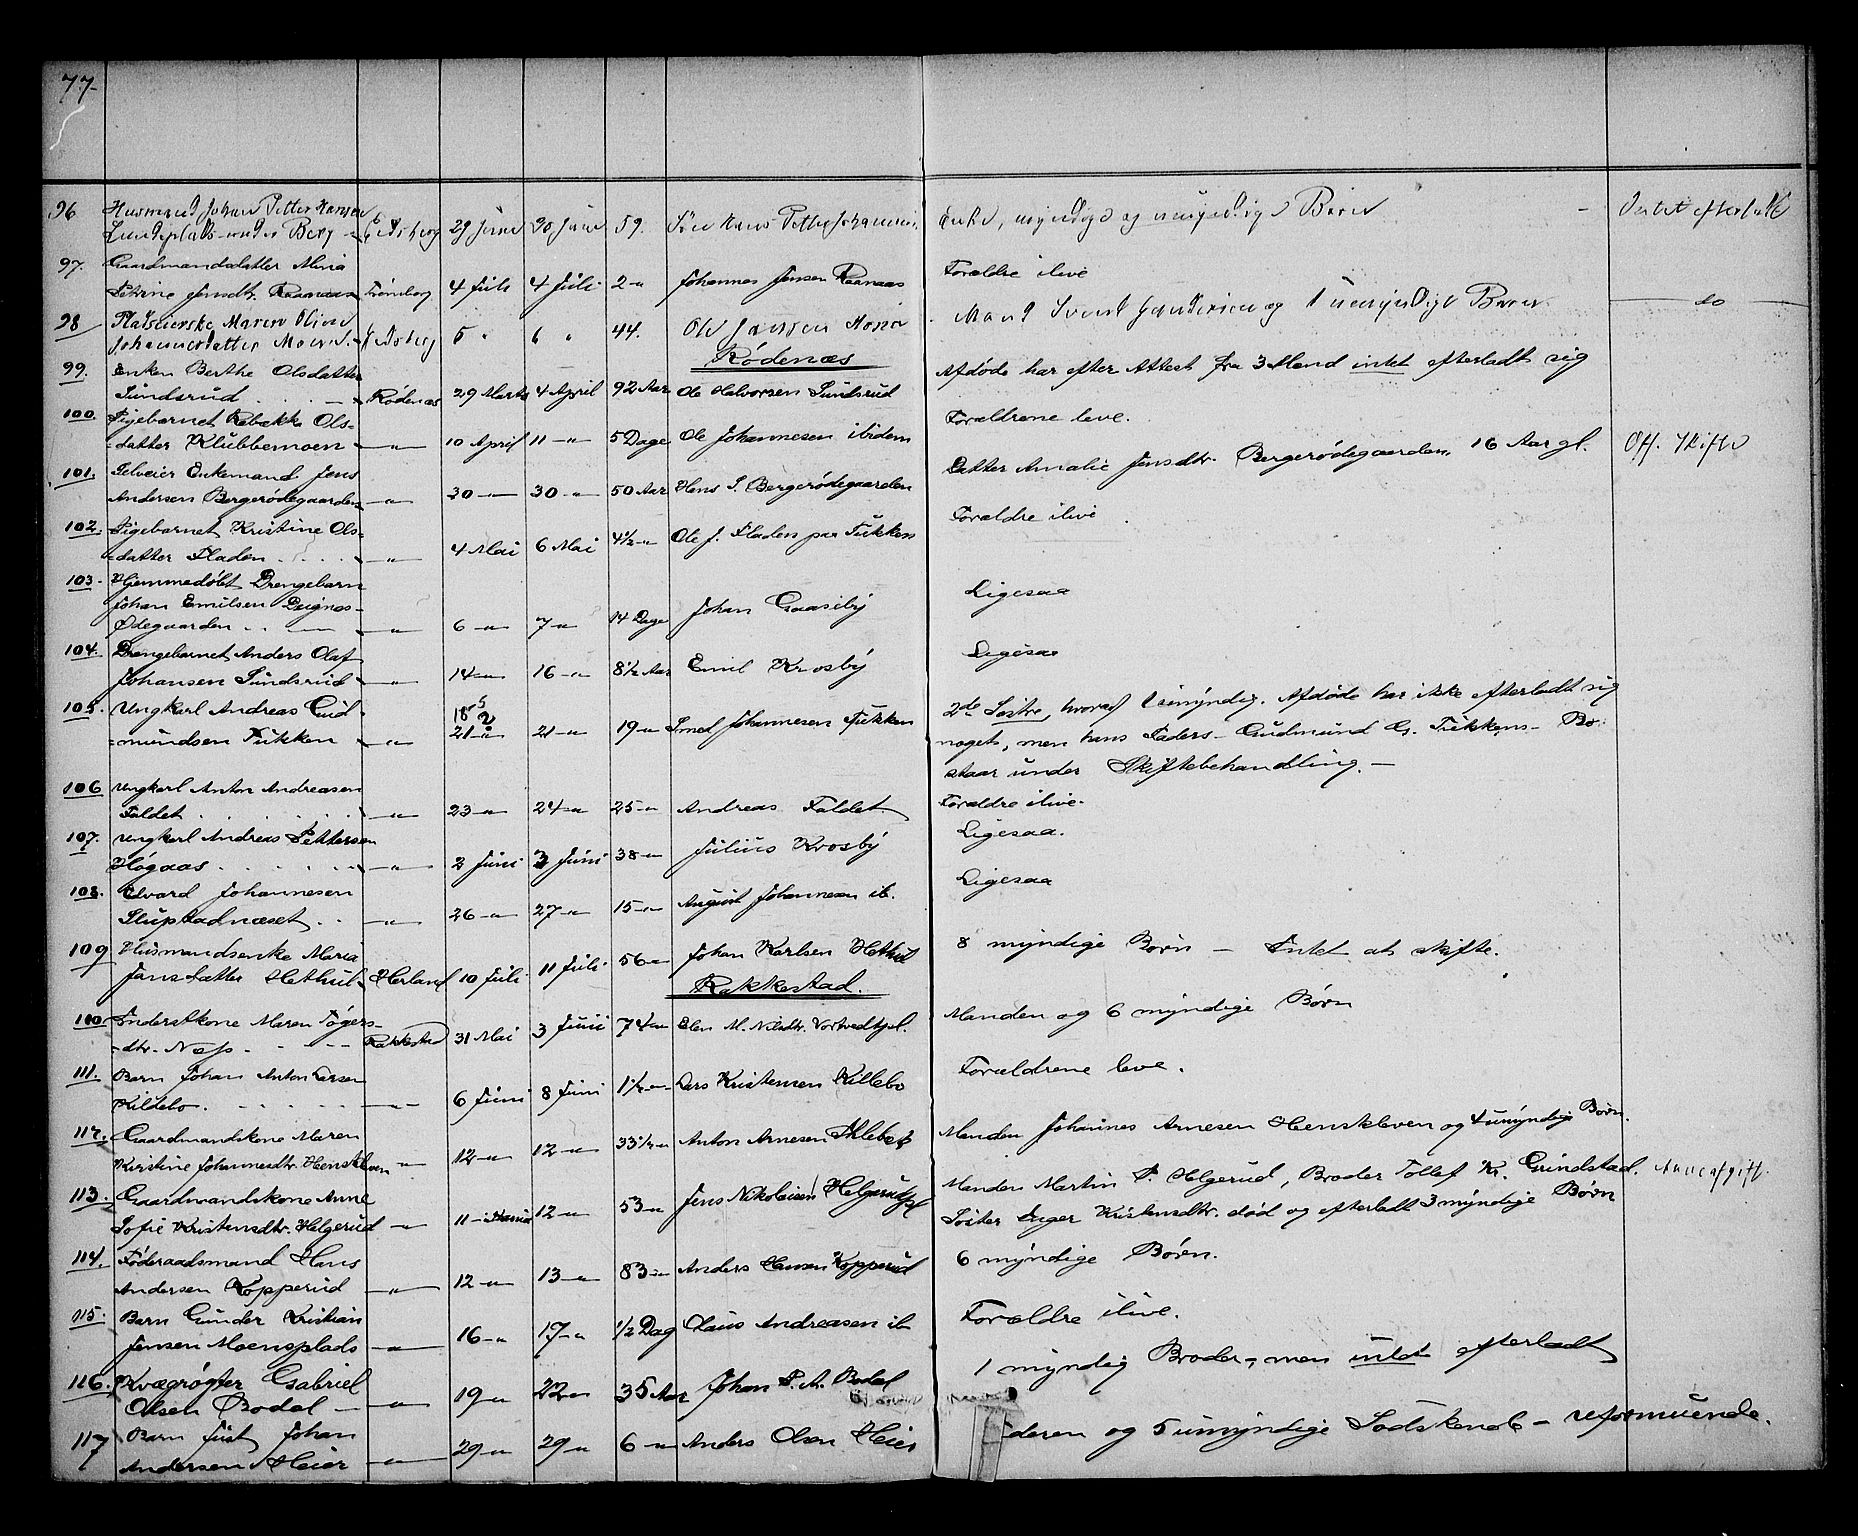 77
96 Husmand Johan Petter Hansen
Lundeplads under Berg Eidsberg 29 Juni 30 Juni 59. Søn Hans Petter Johannesen Enke, myndige og umyndige Børn - Intet efterladt
97. Gaardmandsdatter Mina
Petrine Jensdtr. Raanaas Trømborg 4 Juli 4 Juli 2 -"- Johannes Jensen Raanaas Forældre ilive
98 Pladseierske Maren Oline
Johannesdatter Moen Eidsberg 5 " 6 " 44. Ole Jansen Mand Svend Gundersen og 1 umyndigt Barn do
Rødenæs
99. Enken Berthe Olsdatter
Sundsrud Rødenæs 29 Marts 4 April 92 Aar Ole Halvorsen Sundsrud Afdøde har efter Attest fra 3 Mænd intet efterladt sig
100. Pigebarnet Rebekka Ols-
datter Klubbemoen -"- 10 April 11 -"- 5 Dage Ole Johannesen ibidem Forældrene leve.
101. Selveier Enkemand Jens
Andersen Bergerødegaarden -"- 30 -"- 30 -"- 50 Aar Hans P. Bergerødegaarden Datter Amalie Jensdtr. Bergerødegaarden, 16 Aar gl. Off. Skifte
102. Pigebarnet Kristine Ols-
datter Fladen -"- 4 Mai 6 Mai 4½ -"- Ole J. Fladen paa Tukken Forældre ilive
103. Hjemmedøbt Drengebarn
Johan Emilsen
Ødegaarden -"- 6 -"- 7 -"- 14 Dage Johan Gaaseby Ligesaa
104. Drengebarnet Anders Olaf
Johansen Sundsrud -"- 14 -"- 16 -"- 8½ Aar Emil Krosby Ligesaa
105. Ungkarl Andreas Gud-
mundsen Tukken -"- 18 21 -"- 21 -"- 19 -"- Johannesen Tukken 2de Søstre, hvoraf 1 umyndig. Afdøde har ikke efterladt sig
noget, men hans Faders - Gudmund G. Tukkens - Bo
staar under Skiftebehandling. -
106 Ungkarl Anton Andreasen
Faldet -"- 23 -"- 24 -"- 25 -"- Andreas Faldet Forældre ilive.
107. Ungkarl Andreas Pettersen
Høgaas -"- 2 Juni 3 Juni 38 -"- Julius Krosby Ligesaa.
108. Edvard Johannesen
Slupstadnæset -"- 26 -"- 27 -"- 15 -"- August Johannesen ib. Ligesaa
109 Husmandsenke Maria
Jansdatter Hethul Herland 10 Juli 11 Juli 56 -"- Johan Karlsen Hethul 8 myndige Børn - Intet at skifte.
Rakkestad.
110. Inderstkone Maren Tøgers-
dtr. Næs Rakkestad 31 Mai 3 Juni 74 -"- Elen M. Nilsdtr. Manden og 6 myndige Børn
111. Barn Johan Anton Larsen
Kildebo. -"- 6 Juni 8 Juni 1½ -"- Lars Kristensen Killebo Forældrene leve.
112. Gaardmandskone Maren
Kristine Johannesdtr. Henskleven -"- 12 -"- 12 -"- 33½ -"- Anton Arnesen Manden Johannes Arnesen Henskleven og 4 umyndig Børn.
113. Gaardmandskone Anne
Sofie Kristensdtr. Helgerud -"- 11 12 -"- 53 -"- Jens Nikolaisen Manden Martin P. Helgerud, Broder Tollef Kr. Grindstad. Arveafgift.
Søster Inger Kristensdtr. død og efterladt 3 myndige Børn
114. Føderaadsmand Hans
Andersen Kopperud -"- 12 -"- 13 -"- 83 -"- Anders Hansen Kopperud 6 myndige Børn.
115. Barn Gunder Kristian
Jensen Moensplads -"- 16 -"- 17 -"- ½ Dag Olaus Andreasen ib Forældre ilive.
116. Kvægrøgter Gabriel
Olsen Bodal -"- 19 -"- 22 -"- 35 Aar Johan P. A. Bodal 1 myndig Broder, men intet efterladt
117 Barn Just Johan
Andersen Heier -"- 29 -"- 29 -"- 6 -"- Anders Olsen Heier deren og 5 umyndige Sødskende -